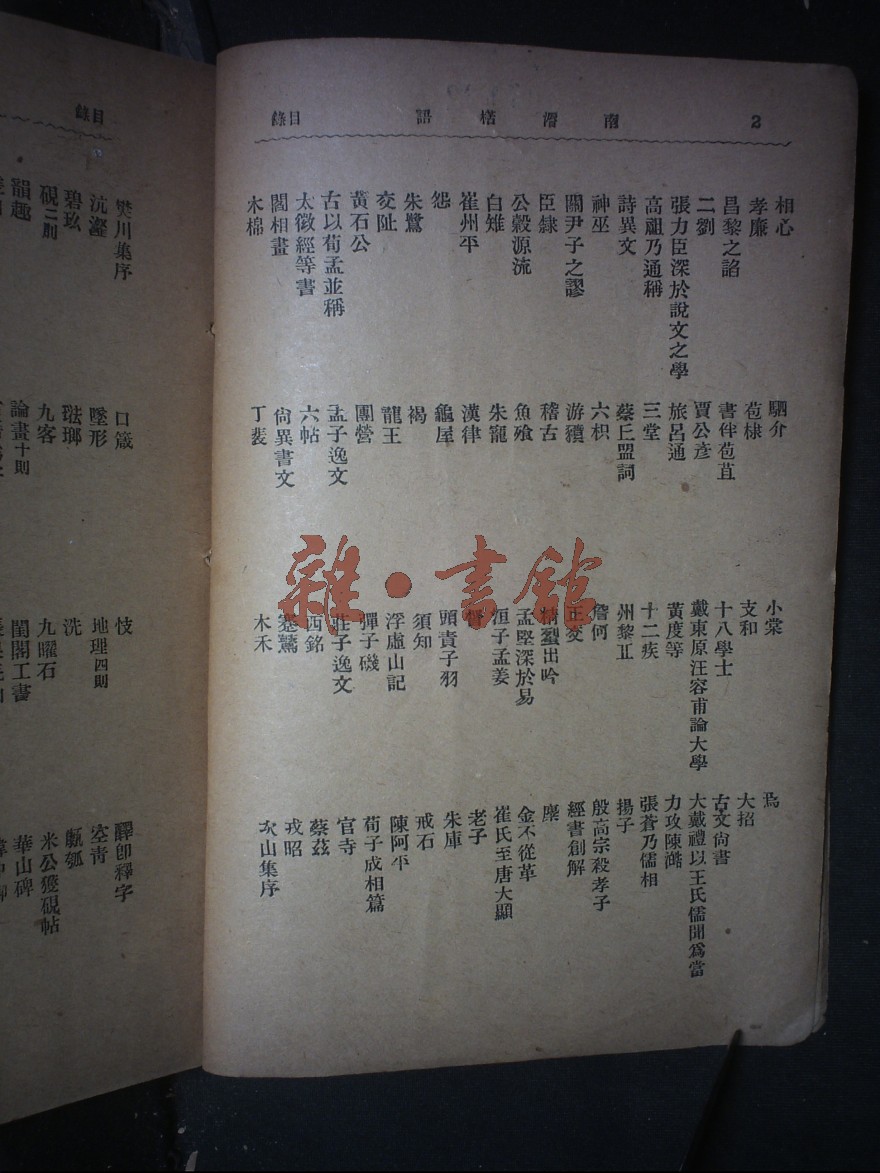 2
南漘楛語
目錄
相心
孝廉
昌黎之諂
二劉
張力臣深於說文之學
高祖乃通稱
詩異文
神巫
關尹子之謬
臣隸
公穀源流
白雉
崔州平
怨
朱鷺
交阯
黃石公
古以荀孟並稱
太徵經等書
閻相畫
木棉
駟介
苞棣
書伴苞苴
賈公彥
旅呂通
三堂
蔡丘盟詞
六枳
游獵
稽古
魚飧
朱寵
漢律
龜屋
褐
龍王
團營
孟子逸文
六帖
尙異書文
丁裴
小棠
支和
十八學士
戴東原汪容甫論大學
黃度等
十二疾
州黎丘
詹何
正变
精蛩出吟
孟堅深於易
垣子孟姜
頭責子羽
須知
浮虛山記
彈子磯
莊子逸文
西銘
蹇驚
木禾
爲
大招
古文尙書
大戴禮以王氏儒聞爲當
力攻陳澔
張蒼乃儒相
揚子
殷高宗殺孝子
經書創解
麋
金不從革
崔氏至唐大顯
老子
朱庫
戒石
陳阿平
荀子成相篇
官寺
蔡茲
戎昭
次山集序
目錄
樊川集序
沆瀣
碧玜
硯二則
韻趣
口箴
墜形
琺瑯
九客
論畫十則
忮
地理四則
洗
九曜石
閨閣工書
釋卽釋字
空青
甗瓠
米公獲硯帖
華山碑
雜·書館